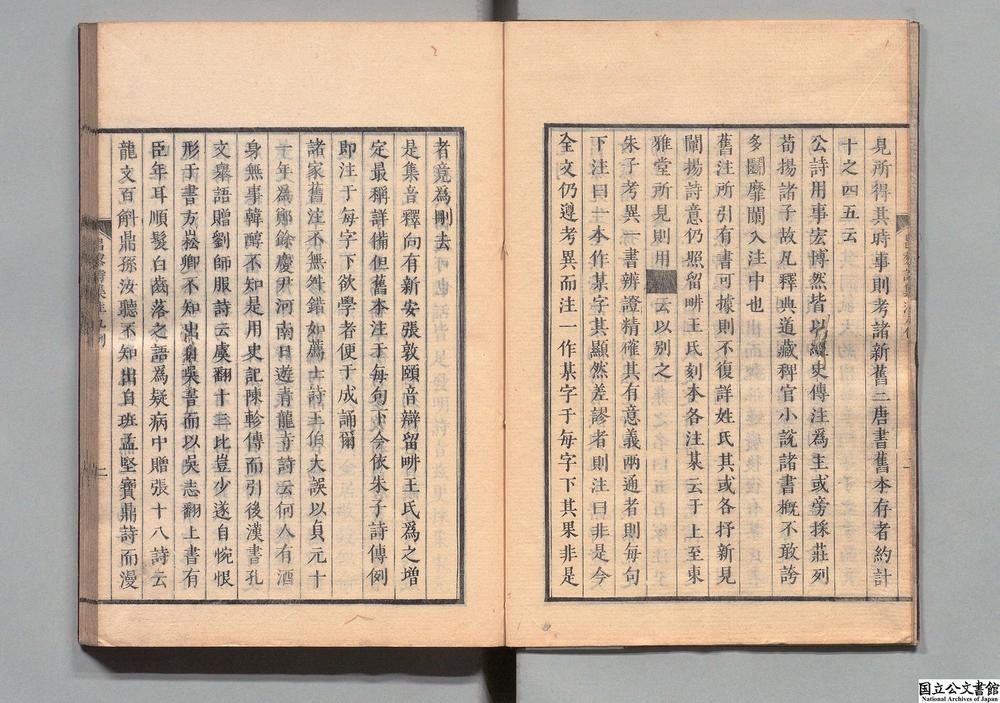 見所得其時事則考諸新舊二唐書舊本存者約計
十之四五云
公詩用事宏博然皆以經史傳注爲主或旁採莊列
荀揚諸子故凡釋典道藏稗官小說諸書概不敢誇
多鬭靡闌入注中也
舊注所引有書可據則不復詳姓氏其或各抒新見
闡揚詩意仍照留畊王氏刻本各注某云于上至東
雅堂所見則用 云以别之
朱子考異一書辨證精確其有意義兩通者則每句
下注曰一本作某字其顯然差謬者則注曰非是今
全文仍遵考異而注一作某字于每字下其果非是
者竟為刪去
是集音釋向有新安張敦頤音辯留畊王氏爲之增
定最稱詳備但舊本注于每句下今依朱子詩傳例
即注于每字下欲學者便于成誦爾
諸家舊注不無舛錯如薦士詩王伯大誤以貞元十
十年為鄭餘慶尹河南日遊青龍寺詩云何人有酒
身無事韓醇不知是用史記陳軫傳而引後漢書孔
文舉語贈劉師服詩云虞翻十三比豈少遂自惋恨
形于書方崧卿不知出自吳書而以吳志翻上書有
臣年耳順髮白齒落之語爲疑病中贈張十八詩云
龍文百斛鼎孫汝聽不知出自班孟堅寶鼎詩而漫
国立公文書館
National Archives of Japan